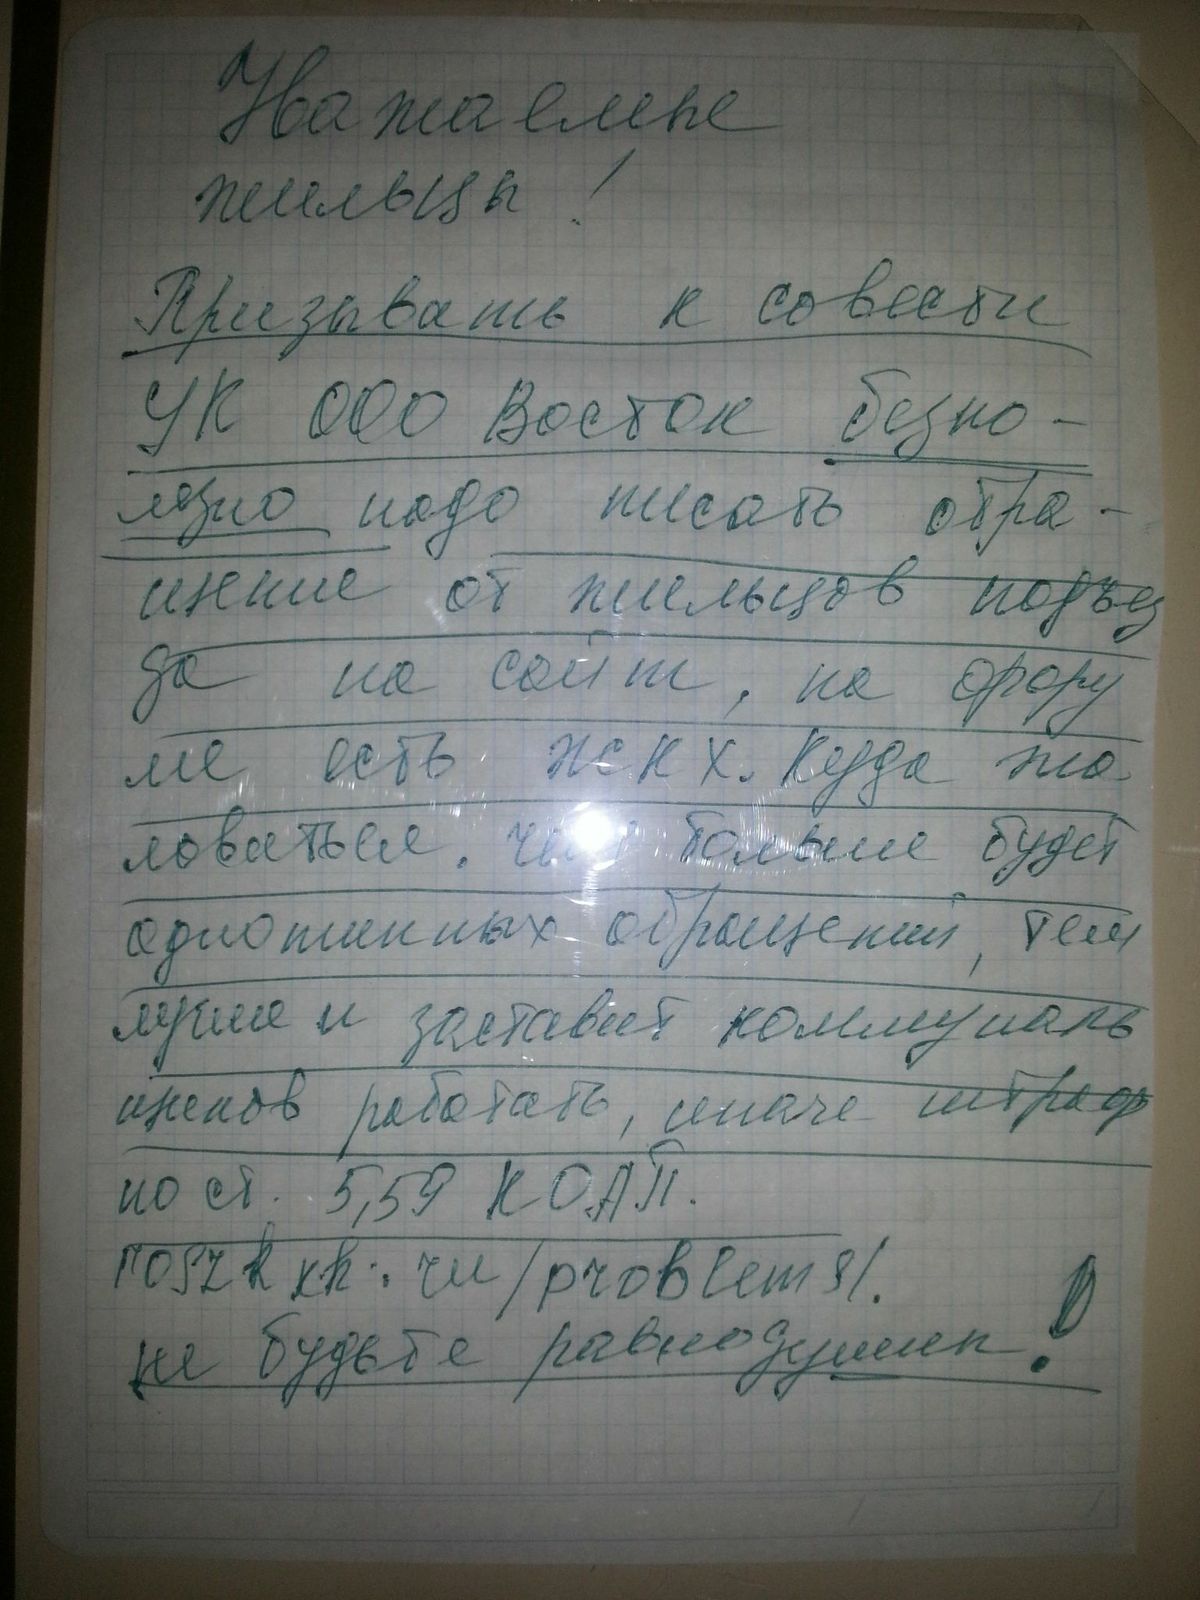 Уважаемые
жильцы!
Призывать к совести
УК ООО Восток беспо-
лезно надо писать обра-
щение от жильцов подъез
да на сайт, на фору
ме есть ЖКХ. Куда жа
ловаться. чем больше будет
однотипных обращений, тем
лучше и заставит коммуналь
щиков работать, иначе штраф
по ст. 5,59 КОАП.
не будьте равнодушны!